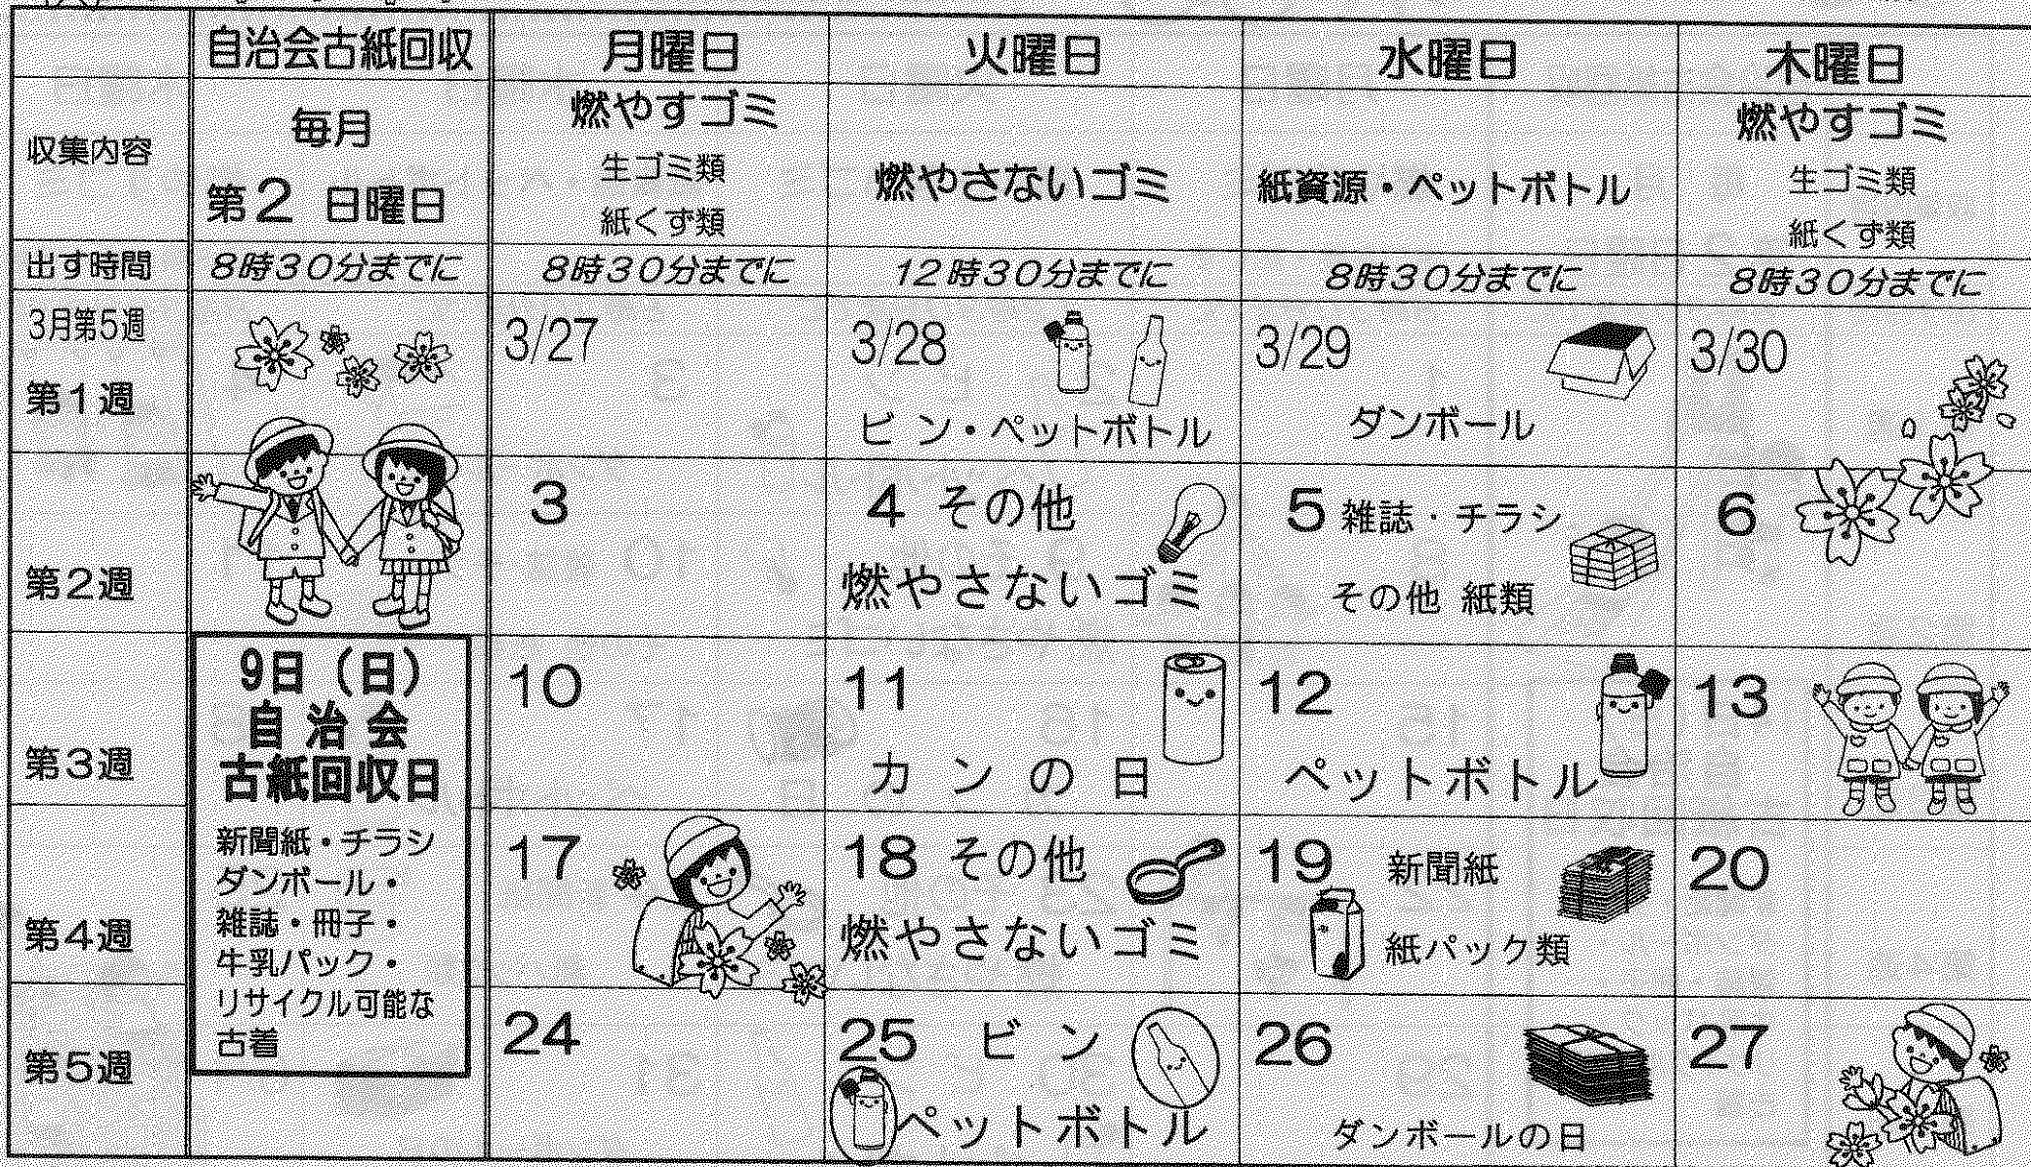 自治会古紙回収 月曜日 火曜日 水曜日 木曜日
収集内容
毎月
第2 日曜日
燃やすゴミ
生ゴミ類
紙くず類
燃やさないゴミ
紙資源・ペットボトル
燃やすゴミ
生ゴミ類
紙くず類
出す時間 8時30分までに 8時30分までに 12時30分までに 8時30分までに 8時30分までに
3月第5週
第1週
3/27
3/28
ビン・ペットボトル
3/29
ダンボール
3/30
第2週
3
4 その他
燃やさないゴミ
5 雑誌・チラシ
その他 紙類
6
9日(日)
自治会
古紙回収日
新聞紙・チラシ
ダンボール・
雑誌・冊子・
牛乳パック・
リサイクル可能な
古着
第3週
10
11
カンの日
12
ペットボトル
13
第4週
17
18 その他
燃やさないゴミ
19 新聞紙
紙パック類
20
第5週
24
25 ビン
ペットボトル
26
ダンボールの日
27